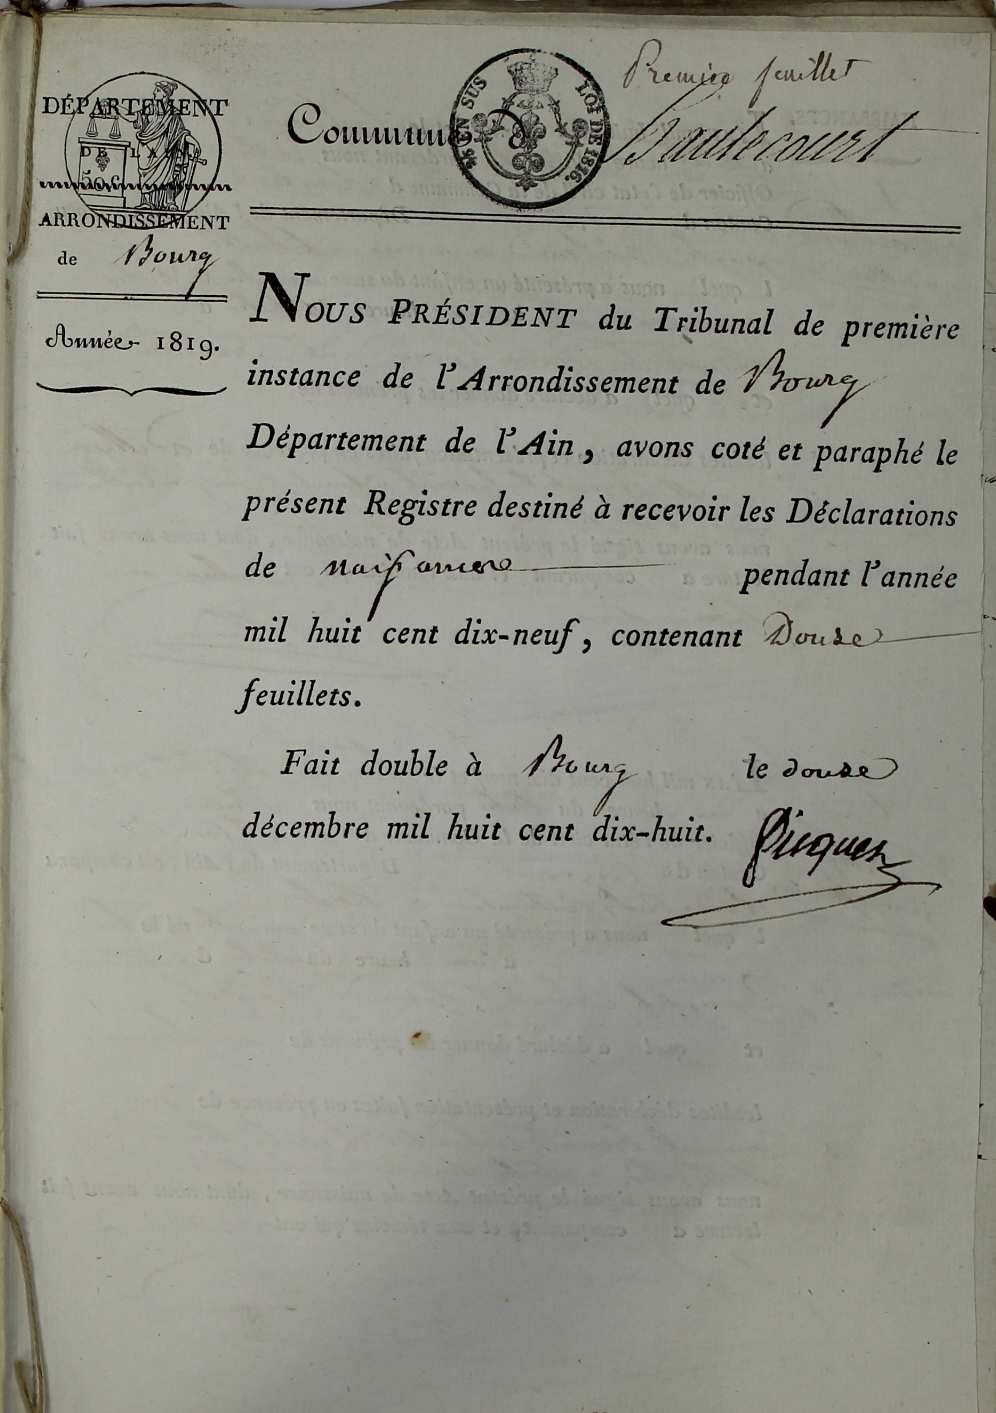 Premier feuillet
DÉPARTEMENT
DE L'A
50 c
ARRONDISSEMENT
de Bourg
Année 1819.
Commune d
EN SUS
LOI DE 1816.
Hautecourt
NOUS PRÉSIDENT du Tribunal de première
instance de l'Arrondissement de Bourg
Département de l'Ain, avons coté et paraphé le
présent Registre destiné à recevoir les Déclarations
de naissance pendant l'année
mil huit cent dix-neuf, contenant Douze
feuillets.
Fait double à Bourg le douze
décembre mil huit cent dix-huit.